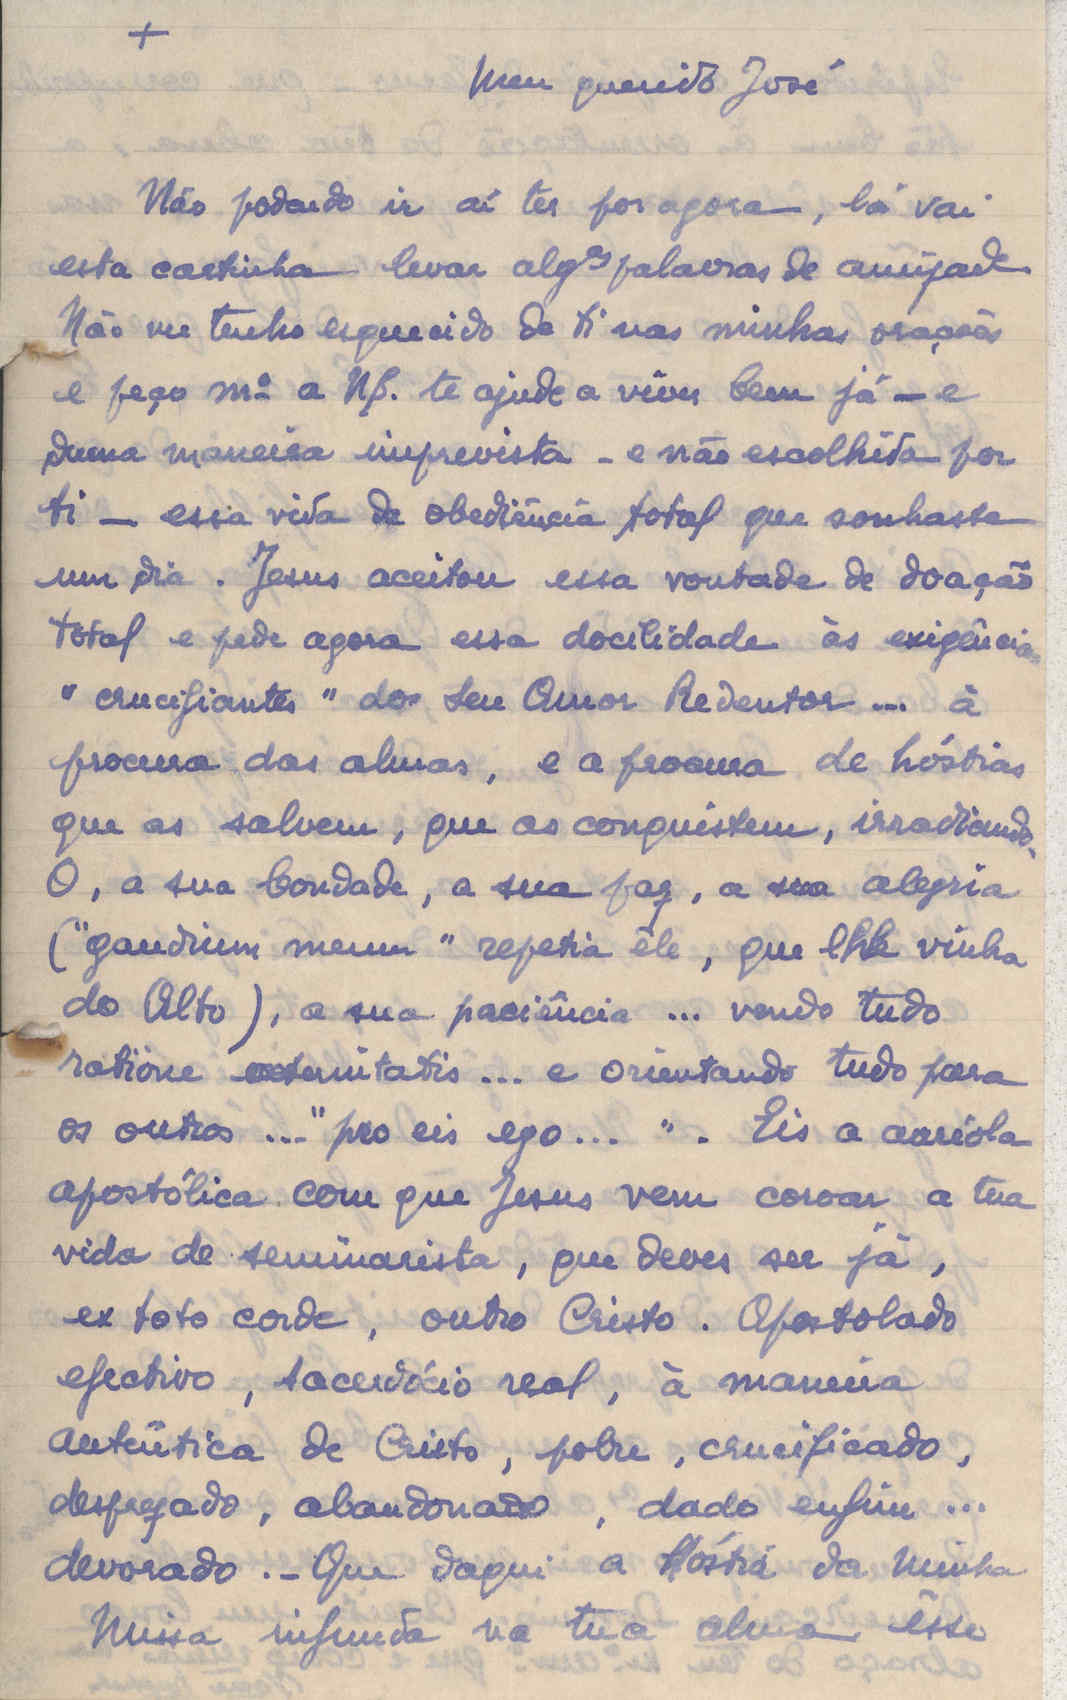 +
Meu querido José
Não podendo ir aí ter por agora, lá vai
esta cartinha levar algas palavras de amizade.
Não me tenho esquecido de ti nas minhas orações
e peço mo a NS. te ajude a viver bem já – e
duma maneira imprevista – e não escolhida por
ti – essa vida de obediência total que sonhaste
um dia. Jesus aceitou essa vontade de doação
total e pede agora essa docilidade às exigências
"crucifiantes" do Seu Amor Redentor ... à
procura das almas, e a procura de hóstias
que as salvem, que as conquistem, irradiando-
O, a sua bondade, a sua paz, a sua alegria
("gaudium meum" repetia êle, que lhe vinha
do Alto), a sua paciência ... vendo tudo
ratione aeternitatis ... e orientando tudo para
os outros ... "pro eis ego ... ". Eis a auréola
apostólica com que Jesus vem coroar a tua
vida de seminarista, que deves ser já,
ex toto corde, outro Cristo. Apostolado
efectivo, sacerdócio real, à maneira
autêntica de Cristo, pobre, crucificado,
desprezado, abandonado, dado enfim ...
devorado. – Que daqui a Hóstia da minha
Missa infunda na tua alma êsse